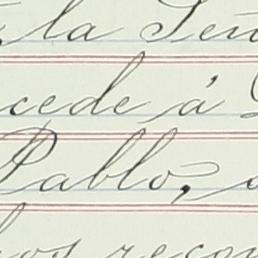 la Señ
cede á
Pablo,
los recon